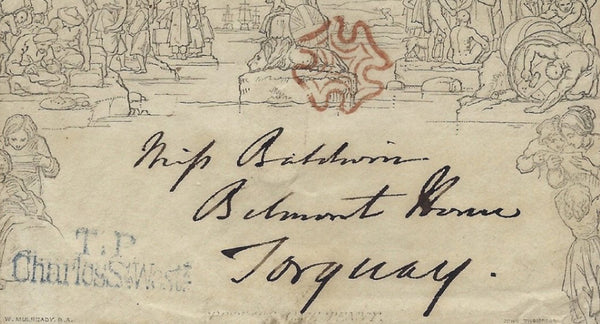 Miss Baldwin
Belmont House
Torquay.
T.P
Charles St West.
W. MULREADY. R.A.
JOHN THOMPSON